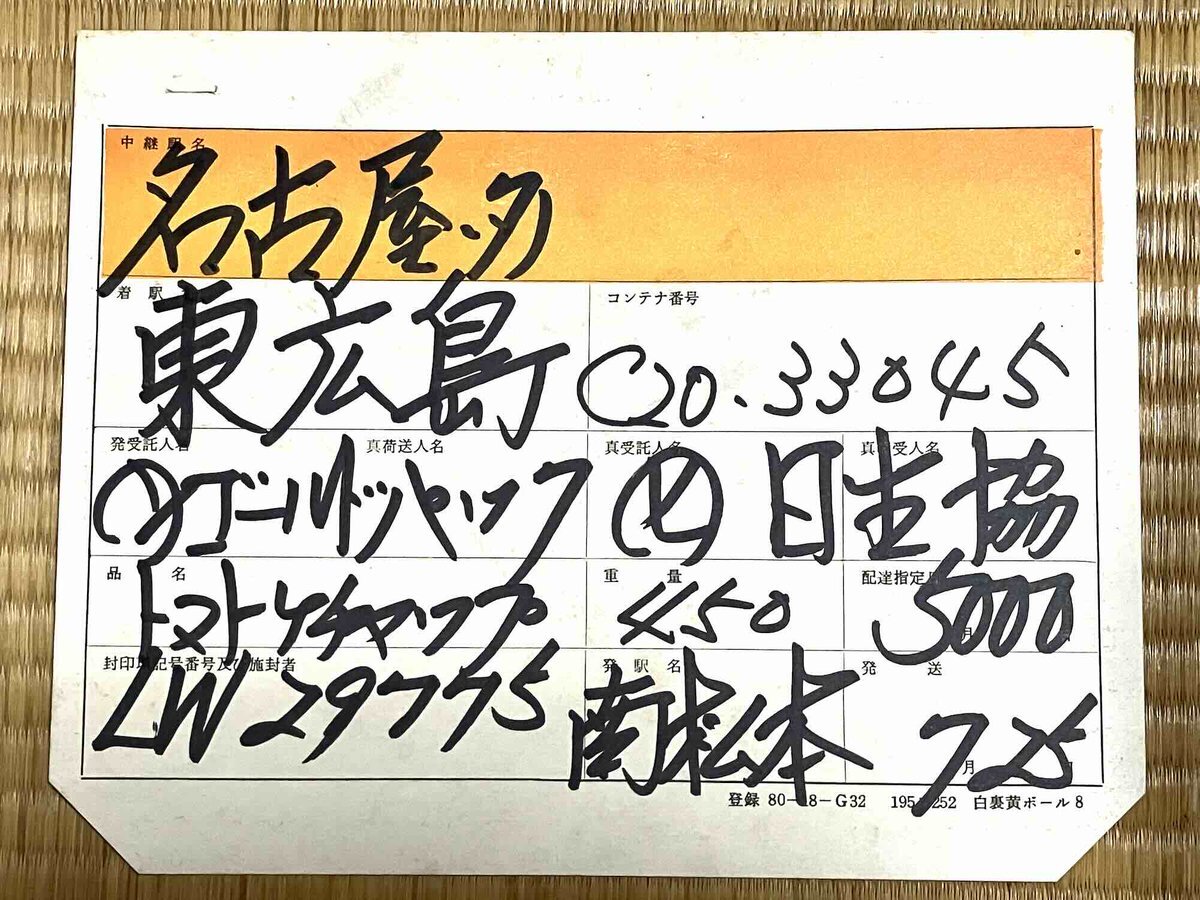 中継駅名
名古屋タ
着駅
コンテナ番号
東広島
C20.33045
発受託人名 真荷送人名 真受託人名
ゴールドパック
日生協
品名 重量 配達指定
トマトケチャップ
450
5000
封印環記号番号及び施封者 発駅名 発送
LW29775
南松本
7月25日
登録 80-18-G32 白裏黄ボール8